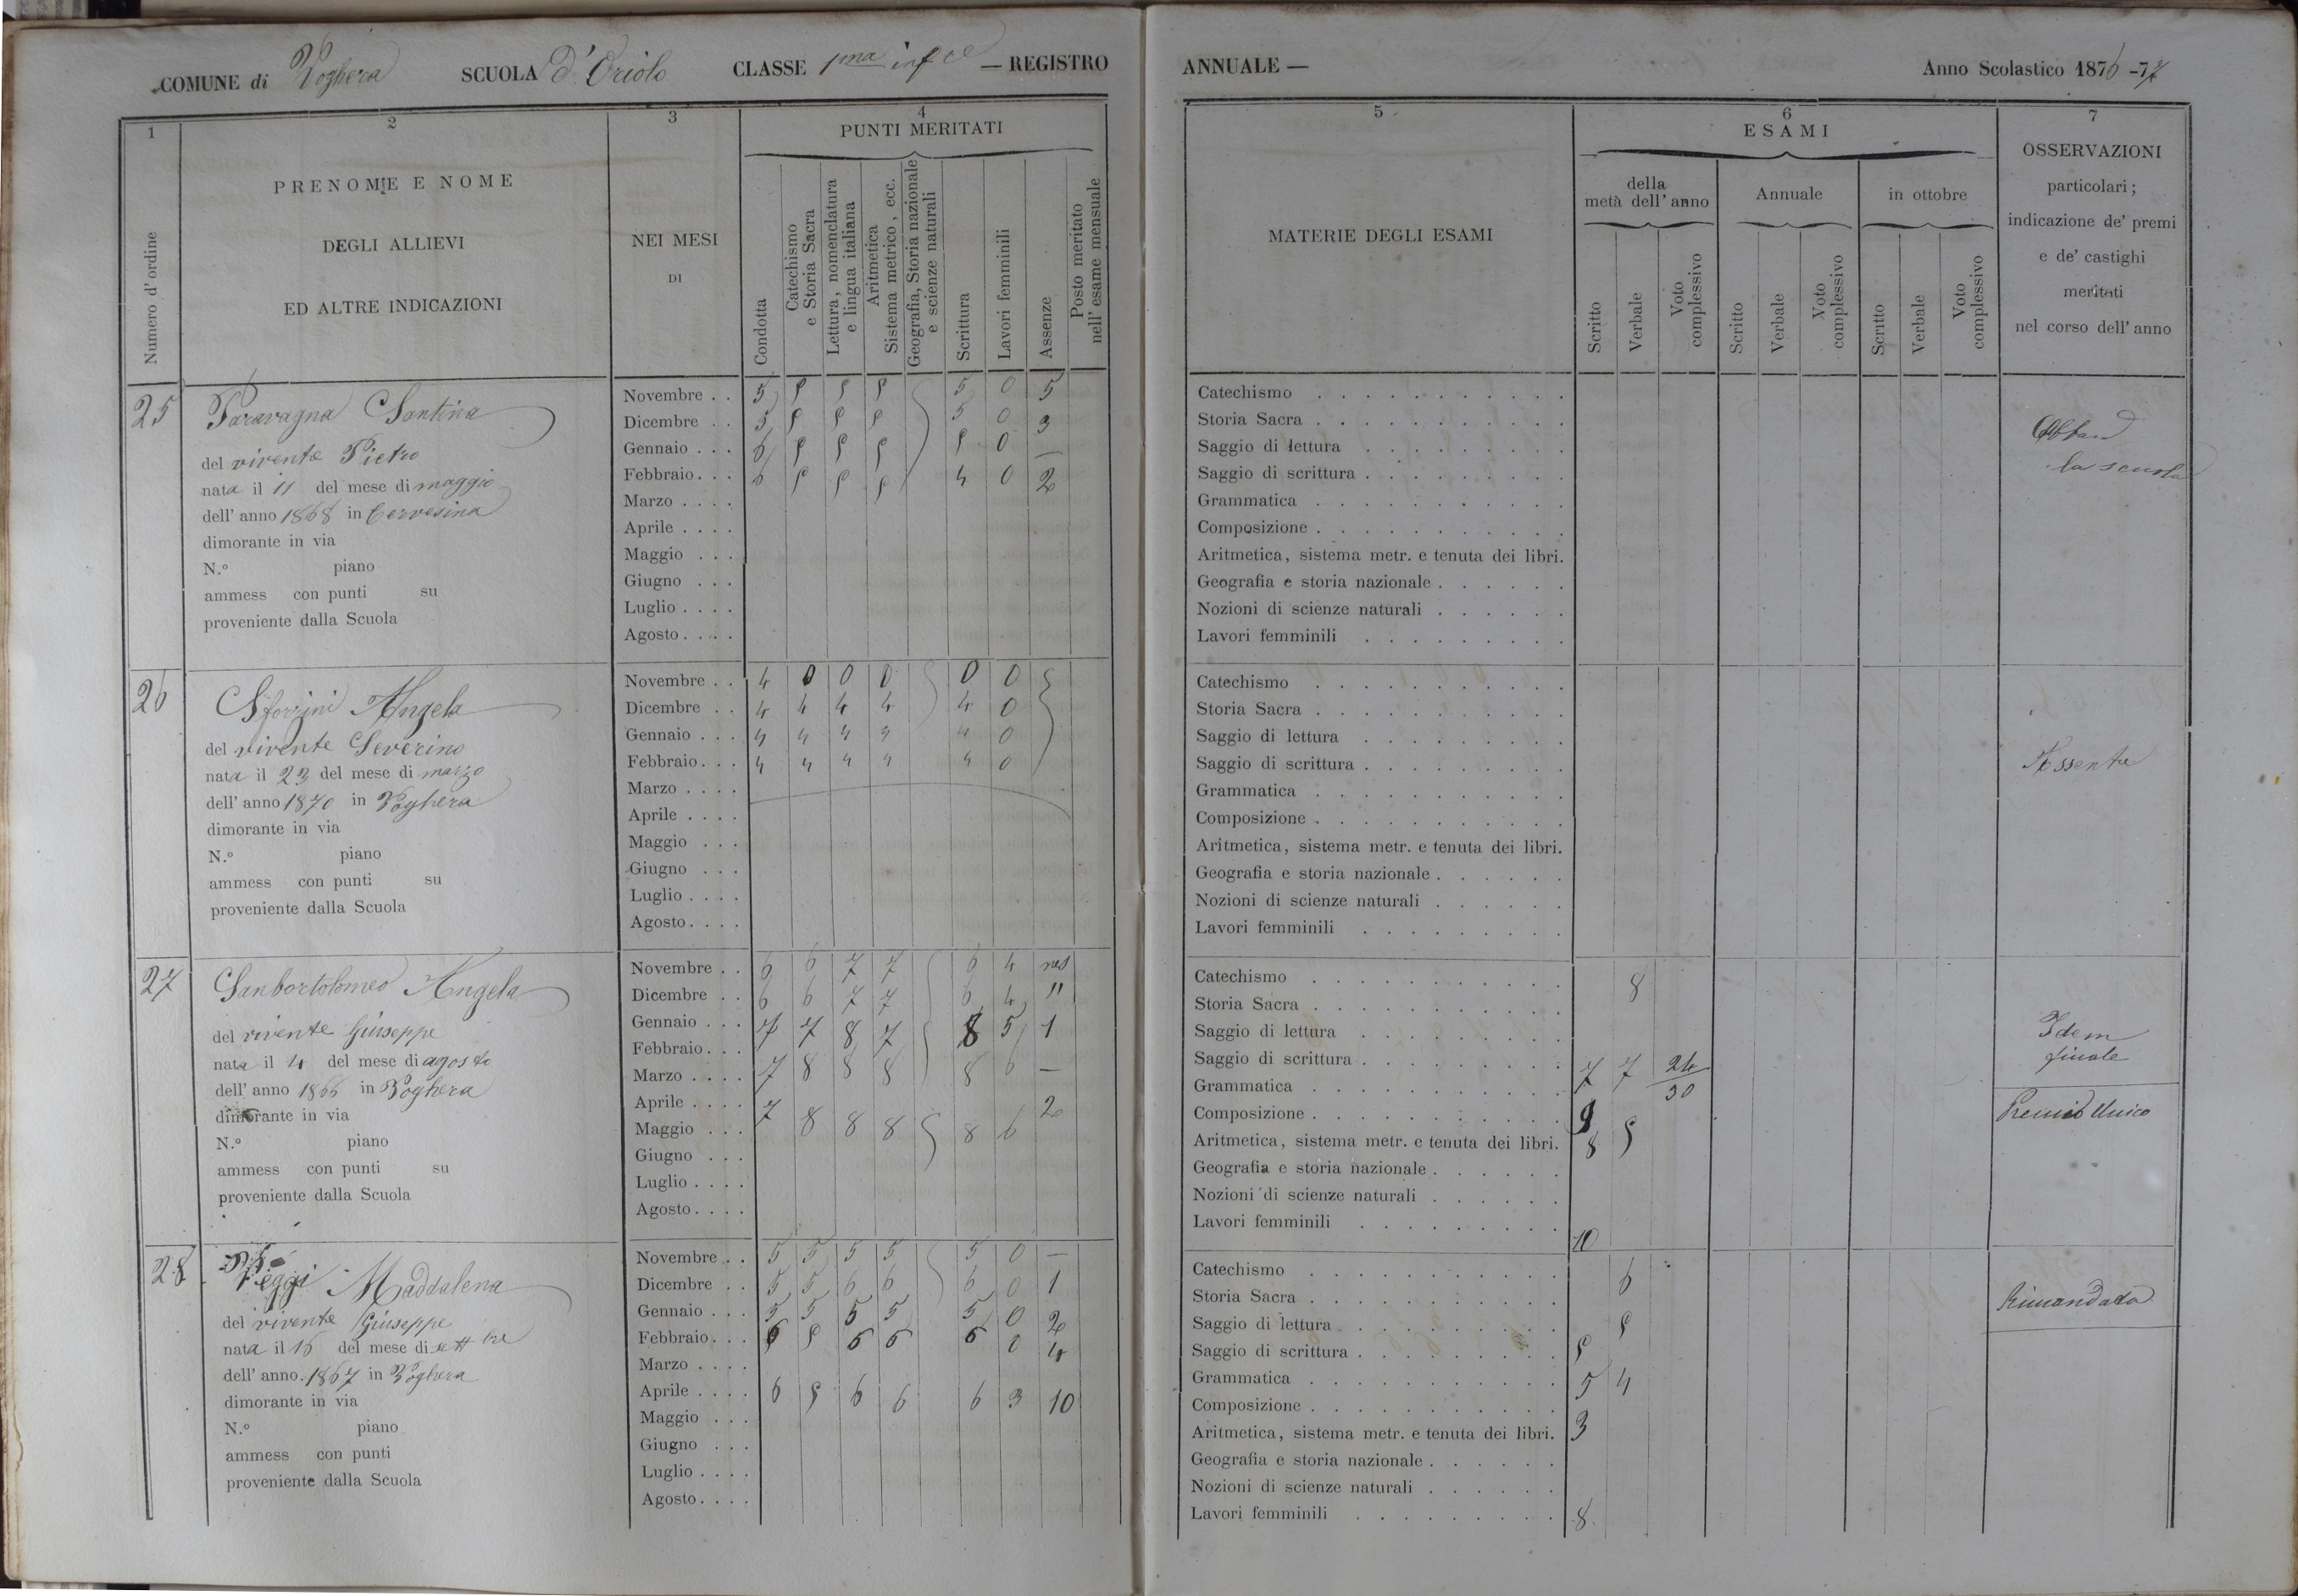 COMUNE di Voghera SCUOLA d'Oriolo CLASSE 1ma infre — REGISTRO
ANNUALE — Anno Scolastico 1876-77
1 2 3 4
PUNTI MERITATI
Numero d'ordine
PRENOME E NOME
DEGLI ALLIEVI
ED ALTRE INDICAZIONI
NEI MESI
DI
Condotta
Catechismo
e Storia Sacra
Lettura, nomenclatura
e lingua italiana
Aritmetica
Sistema metrico, ecc.
Geografia, Storia nazionale
e scienze naturali
Scrittura
Lavori femminili
Assenze
Posto meritato
nell'esame mensuale
25
Paravagna Santina
del vivente Pietro
nata il 11 del mese di maggio
dell'anno 1868 in Cervesina
dimorante in via
N.º piano
ammess con punti su
proveniente dalla Scuola
Novembre . . 5 5 5 5 5 0 5
Dicembre . . 5 5 5 5 5 0 3
Gennaio . . . 6 5 5 5 5 0 —
Febbraio. . . 6 5 5 5 4 0 2
Marzo . . . .
Aprile . . . .
Maggio . . .
Giugno . . .
Luglio . . . .
Agosto . . . .
26
Sforzini Angela
del vivente Severino
nata il 23 del mese di marzo
dell'anno 1870 in Voghera
dimorante in via
N.º piano
ammess con punti su
proveniente dalla Scuola
Novembre . . 4 0 0 0 0 0
Dicembre . . 4 4 4 4 4 0
Gennaio . . . 4 4 4 4 4 0
Febbraio. . . 4 4 4 4 4 0
Marzo . . . .
Aprile . . . .
Maggio . . .
Giugno . . .
Luglio . . . .
Agosto . . . .
27
Sanbortolomeo Angela
del vivente Giuseppe
nata il 4 del mese di agosto
dell'anno 1866 in Voghera
dimorante in via
N.º piano
ammess con punti su
proveniente dalla Scuola
Novembre . . 6 6 7 7 6 4 nes
Dicembre . . 6 6 7 7 6 4 "
Gennaio . . . 7 7 8 7 8 5 1
Febbraio. . .
Marzo . . . . 7 8 8 8 8 6 —
Aprile . . . . 7 8 8 8 8 6 2
Maggio . . .
Giugno . . .
Luglio . . . .
Agosto . . . .
28
Veggi Maddalena
del vivente Giuseppe
nata il 16 del mese di settbre
dell'anno 1867 in Voghera
dimorante in via
N.º piano
ammess con punti
proveniente dalla Scuola
Novembre . . 5 5 5 5 5 0 —
Dicembre . . 5 5 6 6 6 0 1
Gennaio . . . 5 5 5 5 5 0 2
Febbraio. . . 6 5 6 6 6 0 4
Marzo . . . .
Aprile . . . . 6 5 6 6 6 3 10
Maggio . . .
Giugno . . .
Luglio . . . .
Agosto . . . .
5 6 7
MATERIE DEGLI ESAMI
ESAMI
della
metà dell'anno
Annuale
in ottobre
Scritto
Verbale
Voto
complessivo
Scritto
Verbale
Voto
complessivo
Scritto
Verbale
Voto
complessivo
OSSERVAZIONI
particolari;
indicazione de' premi
e de' castighi
meritati
nel corso dell'anno
Catechismo
Storia Sacra
Saggio di lettura
Saggio di scrittura
Grammatica
Composizione
Aritmetica, sistema metr. e tenuta dei libri.
Geografia e storia nazionale
Nozioni di scienze naturali
Lavori femminili
Abband
la scuola
Catechismo
Storia Sacra
Saggio di lettura
Saggio di scrittura
Grammatica
Composizione
Aritmetica, sistema metr. e tenuta dei libri.
Geografia e storia nazionale
Nozioni di scienze naturali
Lavori femminili
Assente
Catechismo 8
Storia Sacra
Saggio di lettura
Saggio di scrittura 7 7 24/30
Grammatica
Composizione 9
Aritmetica, sistema metr. e tenuta dei libri. 8 5
Geografia e storia nazionale
Nozioni di scienze naturali
Lavori femminili 10
Idem
finale
Premio Unico
Catechismo 6
Storia Sacra
Saggio di lettura 5
Saggio di scrittura 5
Grammatica 5 4
Composizione
Aritmetica, sistema metr. e tenuta dei libri. 3
Geografia e storia nazionale
Nozioni di scienze naturali
Lavori femminili 8
Rimandata